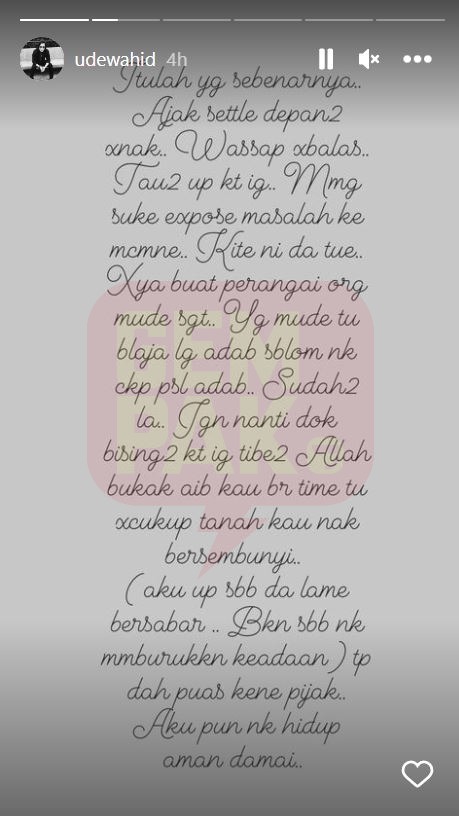 udewahid 4h
Itulah yg sebenarnya..
Ajak settle depan2
xnak.. Wassap xbalas..
Tau2 up kt ig.. Mmg
suke expose masalah ke
mcmne.. Kite ni da tue..
Xya buat perangai org
mude sgt.. Yg mude tu
blaja lg adab sblom nk
ckp psl adab.. Sudah2
la.. Jgn nanti dok
bising2 kt ig tibe2 Allah
bukak aib kau br time tu
xcukup tanah kau nak
bersembunyi..
(aku up sbb da lame
bersabar .. Bkn sbb nk
mmburukkn keadaan) tp
dah puas kene pijak..
Aku pun nk hidup
aman damai..
GEM
PAK